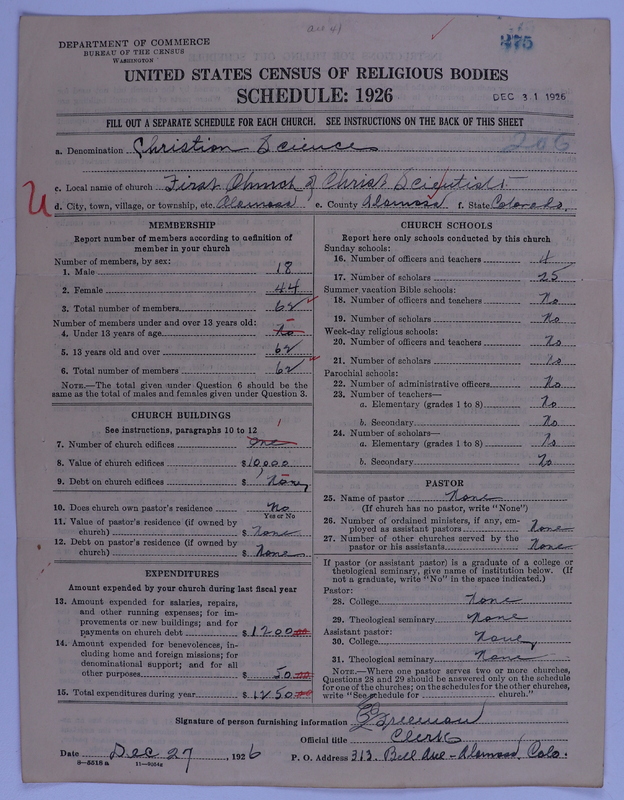 are 41
DEPARTMENT OF COMMERCE
BUREAU OF THE CENSUS
WASHINGTON
UNITED STATES CENSUS OF RELIGIOUS BODIES
SCHEDULE: 1926
DEC 31 1926
FILL OUT A SEPARATE SCHEDULE FOR EACH CHURCH. SEE INSTRUCTIONS ON THE BACK OF THIS SHEET
a. Denomination Christian Science
206
c. Local name of church First Church of Christ Scientist
U
d. City, town, village, or township, etc. Alamosa e. County Alamosa f. State Colorado.
MEMBERSHIP
Report number of members according to definition of
member in your church
Number of members, by sex:
1. Male 18
2. Female 44
3. Total number of members 62
Number of members under and over 13 years old:
4. Under 13 years of age No
5. 13 years old and over 62
6. Total number of members 62
NOTE.—The total given under Question 6 should be the
same as the total of males and females given under Question 3.
CHURCH BUILDINGS
See instructions, paragraphs 10 to 12
7. Number of church edifices one 1
8. Value of church edifices $10,000
9. Debt on church edifices $ None
10. Does church own pastor's residence No
Yes or No
11. Value of pastor's residence (if owned by
church) $ None
12. Debt on pastor's residence (if owned by
church) $ None
EXPENDITURES
Amount expended by your church during last fiscal year
13. Amount expended for salaries, repairs,
and other running expenses; for im-
provements or new buildings; and for
payments on church debt $1200.00
14. Amount expended for benevolences, in-
cluding home and foreign missions; for
denominational support; and for all
other purposes $ 50.00
15. Total expenditures during year $1250.00
CHURCH SCHOOLS
Report here only schools conducted by this church
Sunday schools:
16. Number of officers and teachers 4
17. Number of scholars 25
Summer vacation Bible schools:
18. Number of officers and teachers No
19. Number of scholars No
Week-day religious schools:
20. Number of officers and teachers No
21. Number of scholars No
Parochial schools:
22. Number of administrative officers No
23. Number of teachers—
a. Elementary (grades 1 to 8) No
b. Secondary No
24. Number of scholars—
a. Elementary (grades 1 to 8) No
b. Secondary No
PASTOR
25. Name of pastor None
(If church has no pastor, write "None")
26. Number of ordained ministers, if any, em-
ployed as assistant pastors None
27. Number of other churches served by the
pastor or his assistants None
If pastor (or assistant pastor) is a graduate of a college or
theological seminary, give name of institution below. (If
not a graduate, write "No" in the space indicated.)
Pastor:
28. College None
29. Theological seminary None
Assistant pastor:
30. College None
31. Theological seminary None
NOTE.—Where one pastor serves two or more churches,
Questions 28 and 29 should be answered only on the schedule
for one of the churches; on the schedules for the other churches,
write "See schedule for church."
Signature of person furnishing information Freeman
Official title Clerk
Date Dec 27, 1926 P. O. Address 313 Bell Ave - Alamosa, Colo.
8—5518 a